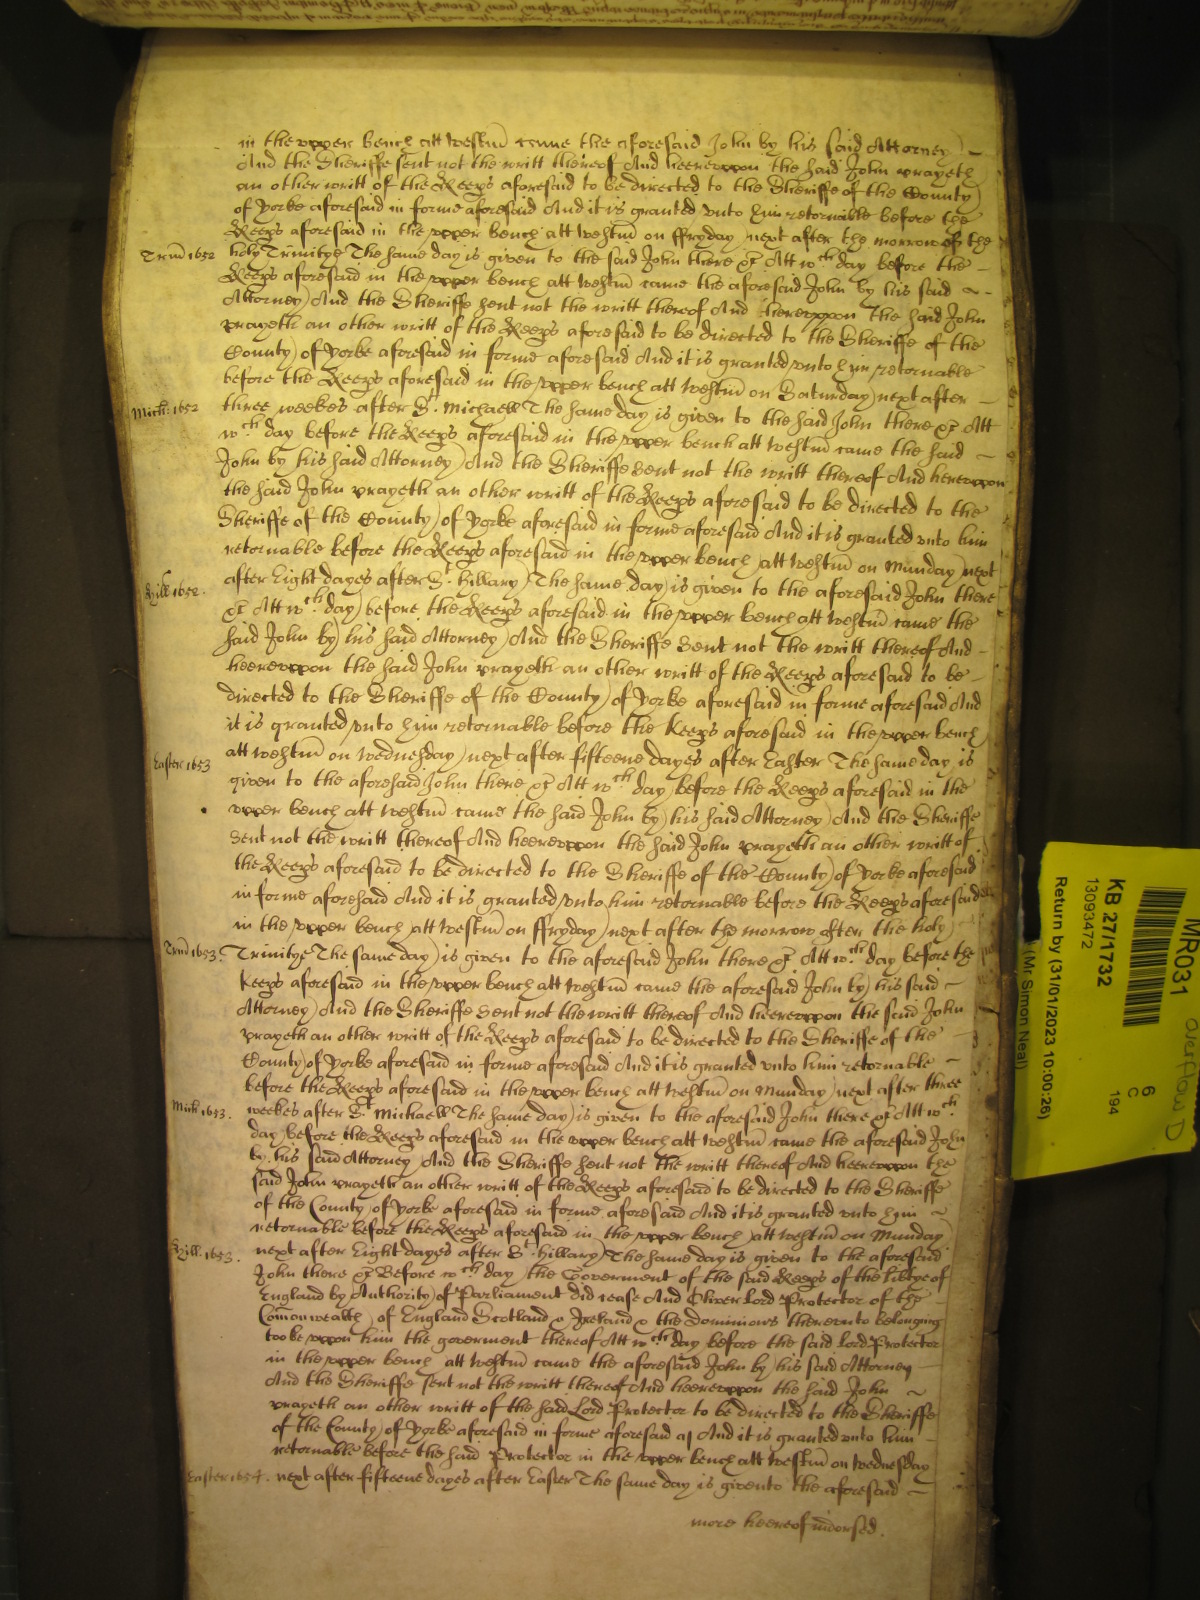 in the upper bench att Westm̄ came the aforesaid John by his said Attorney
And the Sheriffe sent not the writt thereof And heereuppon the said John prayeth
an other writt of the Keeps aforesaid to be directed to the Sheriffe of the County
of Yorke aforesaid in forme aforesaid And it is granted unto him retornable before the
Keeps aforesaid in the upper bench att Westm̄ on ffryday next after the morrow of the
Trin̄ 1652 holy Trinitye The same day is given to the said John there &c Att wch day before the
Keeps aforesaid in the upper bench att Westm̄ came the aforesaid John by his said
Attorney And the Sheriffe sent not the writt thereof And hereuppon the said John
prayeth an other writt of the Keeps aforesaid to be directed to the Sheriffe of the
County of Yorke aforesaid in forme aforesaid And it is granted unto him retornable
before the Keeps aforesaid in the upper bench att Westm̄ on Saturday next after
Mich: 1652 three weekes after St. Michaell The same day is given to the said John there &c Att
wch day before the Keeps aforesaid in the upper bench att Westm̄ came the said
John by his said Attorney And the Sheriffe sent not the writt thereof And hereuppon
the said John prayeth an other writt of the Keeps aforesaid to be directed to the
Sheriffe of the County of Yorke aforesaid in forme aforesaid And it is granted unto him
retornable before the Keeps aforesaid in the upper bench att Westm̄ on Munday next
Hill 1652. after Eight dayes after St. Hillary The same day is given to the aforesaid John there
&c Att wch day before the Keeps aforesaid in the upper bench att Westm̄ came the
said John by his said Attorney And the Sheriffe sent not the writt thereof And
heereuppon the said John prayeth an other writt of the Keeps aforesaid to be
directed to the Sheriffe of the County of Yorke aforesaid in forme aforesaid And
it is granted unto him retornable before the Keeps aforesaid in the upper bench
att Westm̄ on Wednesday next after fifteene dayes after Easter The same day is
Easter 1653 given to the aforesaid John there &c Att wch day before the Keeps aforesaid in the
upper bench att Westm̄ came the said John by his said Attorney And the Sheriffe
sent not the writt thereof And heereuppon the said John prayeth an other writt of
the Keeps aforesaid to be directed to the Sheriffe of the County of Yorke aforesaid
in forme aforesaid And it is granted unto him retornable before the Keeps aforesaid
in the upper bench att Westm̄ on ffryday next after the morrow after the holy
Trin̄ 1653. Trinitye The same day is given to the aforesaid John there &c Att wch day before the
Keeps aforesaid in the upper bench att Westm̄ came the aforesaid John by his said
Attorney And the Sheriffe sent not the writt thereof And heereuppon the said John
prayeth an other writt of the Keeps aforesaid to be directed to the Sheriffe of the
County of Yorke aforesaid in forme aforesaid And it is granted unto him retornable
before the Keeps aforesaid in the upper bench att Westm̄ on Munday next after three
Mich 1653. weekes after St Michaell The same day is given to the aforesaid John there &c Att wch
day before the Keeps aforesaid in the upper bench att Westm̄ came the aforesaid John
by his said Attorney And the Sheriffe sent not the writt thereof And heereuppon the
said John prayeth an other writt of the Keeps aforesaid to be directed to the Sheriffe
of the County of Yorke aforesaid in forme aforesaid And it is granted unto him
retornable before the Keeps aforesaid in the upper bench att Westm̄ on Munday
Hill. 1653. next after Eight dayes after St Hillary The same day is given to the aforesaid
John there &c Before wch day the Goverment of the said Keeps of the libtye of
England by Authority of Parliament did cease And Oliver Lord Protector of the
Comonwealth of England Scotland & Ireland & the Dominions thereunto belonging
tooke uppon him the goverment thereof Att wch day before the said Lord Protector
in the upper bench att Westm̄ came the aforesaid John by his said Attorney
And the Sheriffe sent not the writt thereof And heereuppon the said John
prayeth an other writt of the said Lord Protector to be directed to the Sheriffe
of the County of Yorke aforesaid in forme aforesaid And it is granted unto him
retornable before the said Protector in the upper bench att Westm̄ on Wednesday
Easter 1654. next after fifteene dayes after Easter The same day is given to the aforesaid
more heereof indorsed.
MR031 overflow D
6
C
194
KB 27/1732
13093472
Return by (31/01/2023 10:00:26)
(Mr Simon Neal)